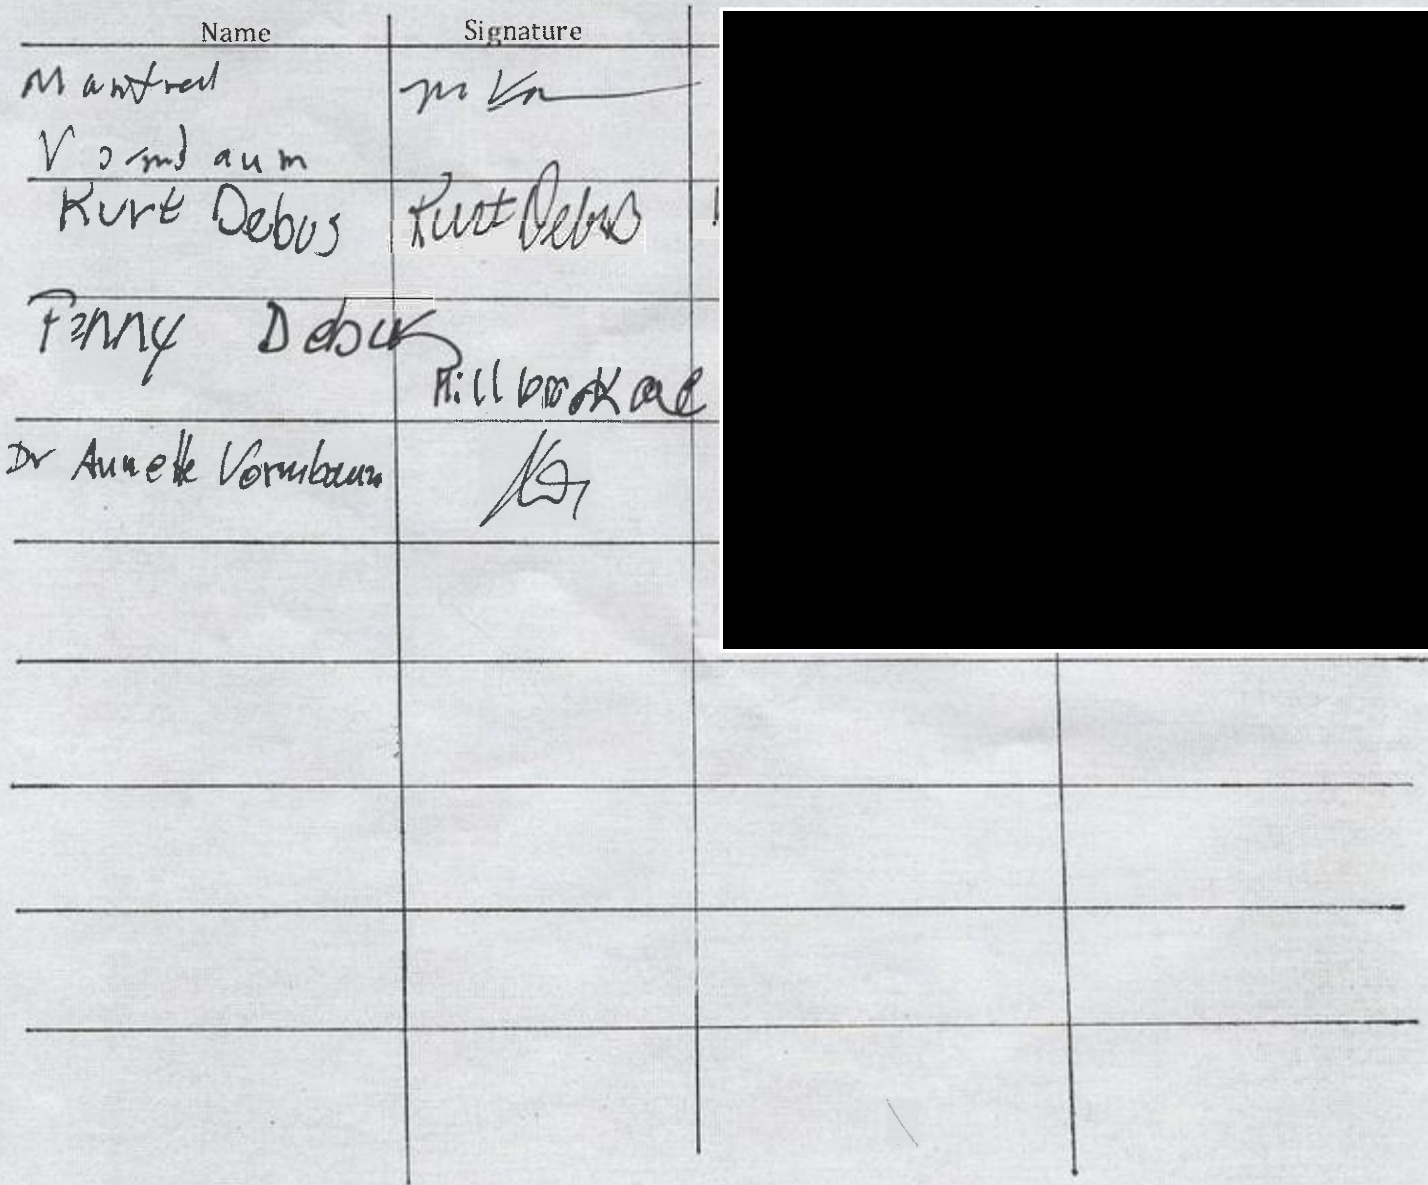 Name Signature
Manfred
Vormbaum
Kurt Debus Kurt Debus
Fenny Debus
Dr Annette Vormbaum